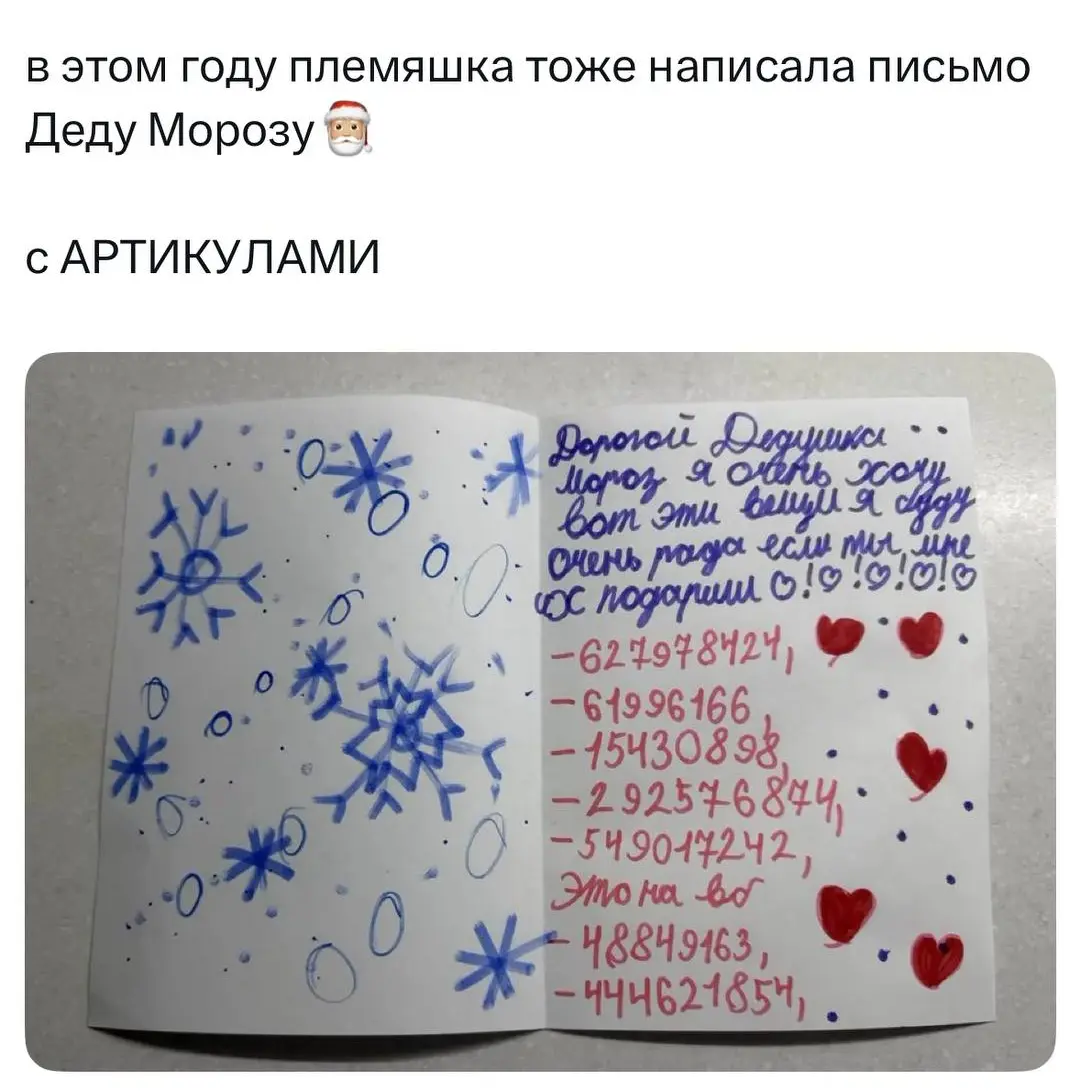 в этом году племяшка тоже написала письмо
Деду Морозу🎅🏼
с АРТИКУЛАМИ
Дорогой Дедушка
мороз я очень хочу
вот эти вещи я буду
очень рада если ты мне
их подариш ♡!♡!♡!♡!♡
-627978424,
-61996166,
-15430898,
-292576874,
-549017242,
Это на вб
-48849163,
-444621854,